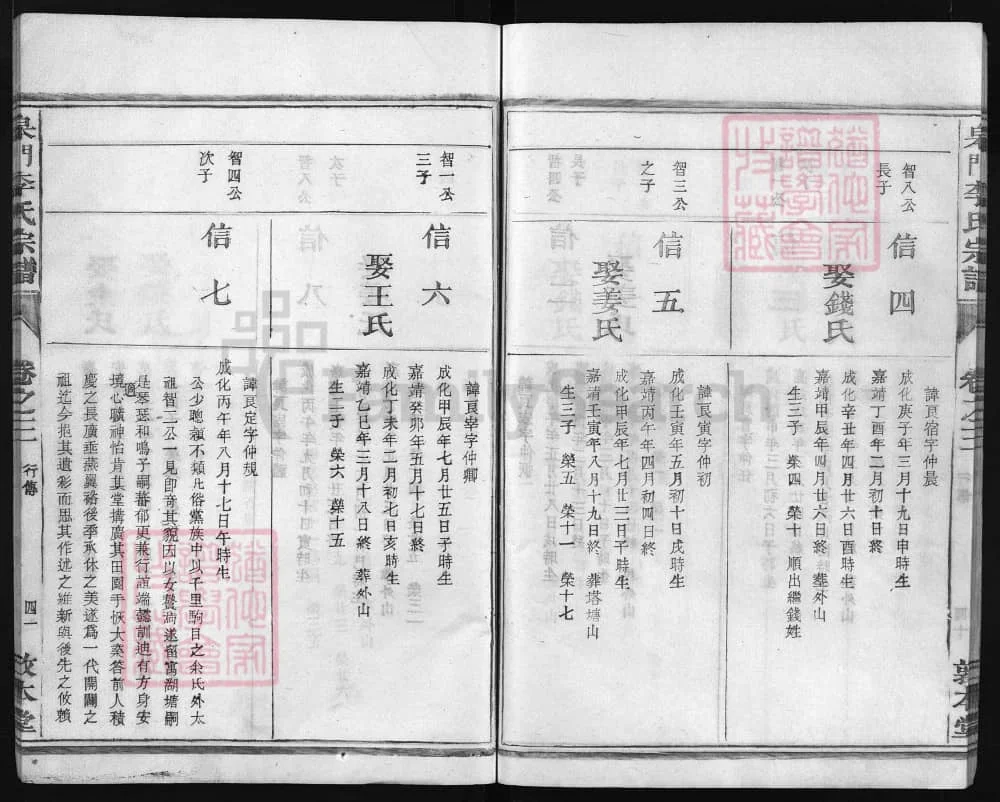 智八公
長子
信四
娶錢氏
諱良宿字仲晨
成化庚子年三月十九日申時生
嘉靖丁酉年二月初十日終
成化辛丑年四月廿六日酉時生
嘉靖甲辰年四月廿六日終 葬外山
生三子 榮四 榮十 順出繼錢姓
智三公
之子
信五
娶姜氏
諱良寅字仲初
成化壬寅年五月初十日戌時生
嘉靖丙午年四月初四日終
成化甲辰年七月廿三日子時生
嘉靖壬寅年八月十九日終 葬塔塘山
生三子 榮五 榮十一 榮十七
泉門李氏宗譜
卷之三
敦本堂
智一公
三子
信六
娶王氏
諱良宰字仲卿
成化甲辰年七月廿五日子時生
嘉靖癸卯年五月十七日終
成化丁未年二月初七日亥時生
嘉靖乙巳年三月十八日終 葬外山
生二子 榮六 榮十五
智四公
次子
信七
諱良定字仲規
成化丙午年八月十七日午時生
公少聰穎不類凡俗黨族中以千里駒目之余氏外太
祖智二公一見即奇其貌因以女妻焉遂留寓湖塘嗣
是琴瑟和鳴子嗣蕃郁更兼行誼端懿訓迪有方身安
境適心曠神怡肯其堂搆廣其田園手恢大業答前人積
慶之長廣垂燕翼裕後季承休之美遂為一代開闢之
祖迄今挹其遺彩而思其作述之維新與後先之攸賴
泉門李氏宗譜
卷之三
行傳
四一
敦本堂